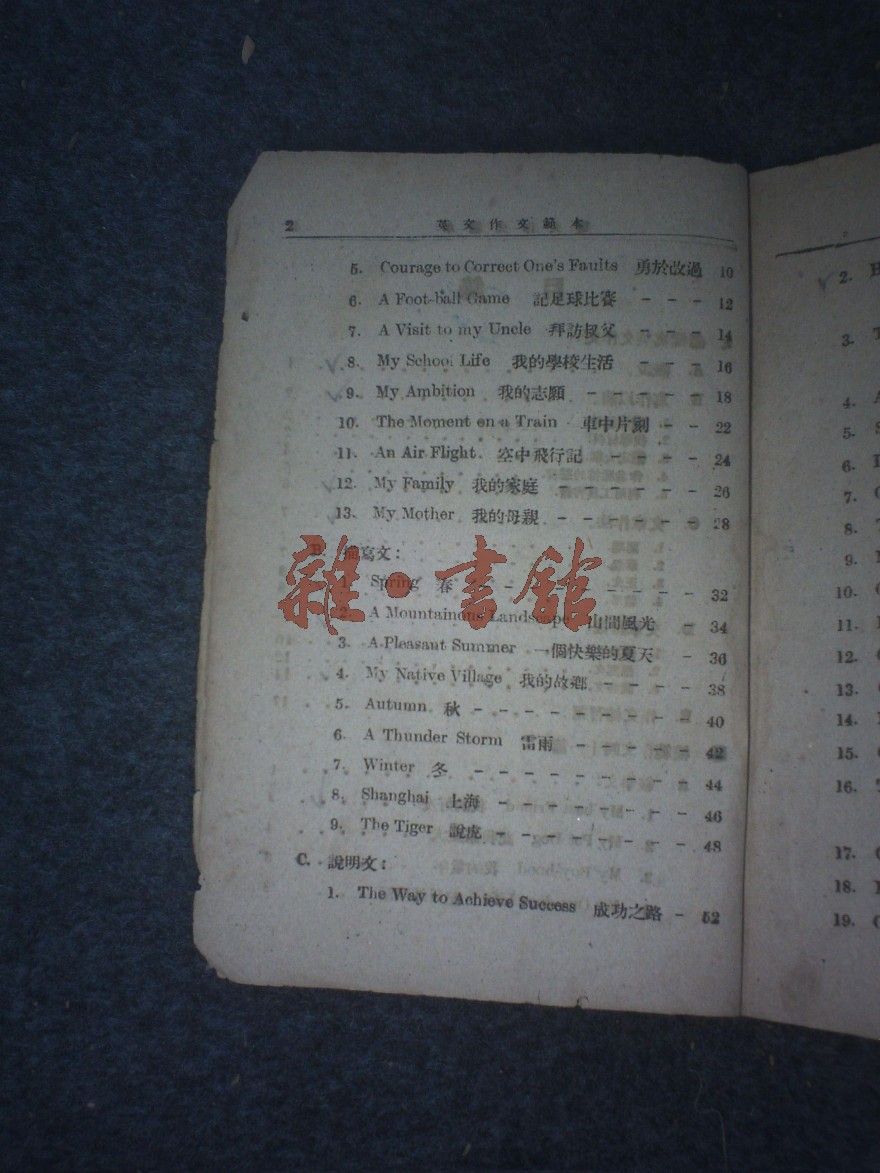 2 英文作文範本
5. Courage to Correct One's Faults 勇於改過 10
6. A Foot-ball Game 記足球比賽 - - - 12
7. A Visit to my Uncle 拜訪叔父 - - - 14
8. My School Life 我的學校生活 - - - 16
9. My Ambition 我的志願 - - - - - 18
10. The Moment on a Train 車中片刻 - - 22
11. An Air Flight 空中飛行記 - - - - 24
12. My Family 我的家庭 - - - - - - 26
13. My Mother 我的母親 - - - - - - 28
B. 描寫文:
1. Spring 春 - - - - - - - - 32
2. A Mountainous Landscape 山間風光 - 34
3. A Pleasant Summer 一個快樂的夏天 - 36
4. My Native Village 我的故鄉 - - - - 38
5. Autumn 秋 - - - - - - - - - 40
6. A Thunder Storm 雷雨 - - - - - 42
7. Winter 冬 - - - - - - - - - 44
8. Shanghai 上海 - - - - - - - - 46
9. The Tiger 說虎 - - - - - - - - 48
C. 說明文:
1. The Way to Achieve Success 成功之路 - 52
雜·書館
2.
3.
4.
5.
6.
7.
8.
9.
10.
11.
12.
13.
14.
15.
16.
17.
18.
19.